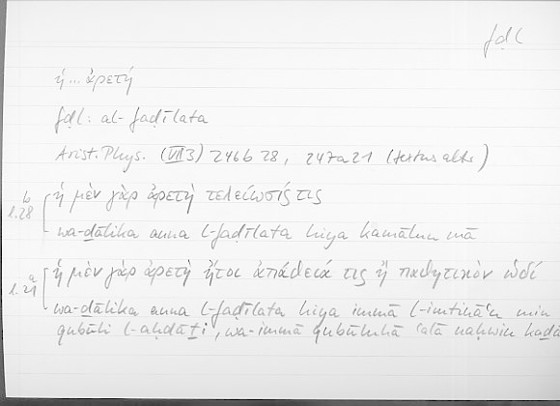 fḍl
ἡ ... ἀρετή
fḍl: al-faḍīlata
Arist. Phys. (VII 3) 246b 28, 247a 21 (textus alter)
b l.28 ἡ μὲν γὰρ ἀρετὴ τελείωσίς τις
wa-ḏālika anna l-faḍīlata hiya kamālun mā
a l.21 ἡ μὲν γὰρ ἀρετὴ ἤτοι ἀπάθειά τις ἢ παθητικὸν ὡδί
wa-ḏālika anna l-faḍīlata hiya immā l-imtināʿu min
qubūli l-aḥdāṯi, wa-immā qubūluhā ʿalā naḥwin kaḏā